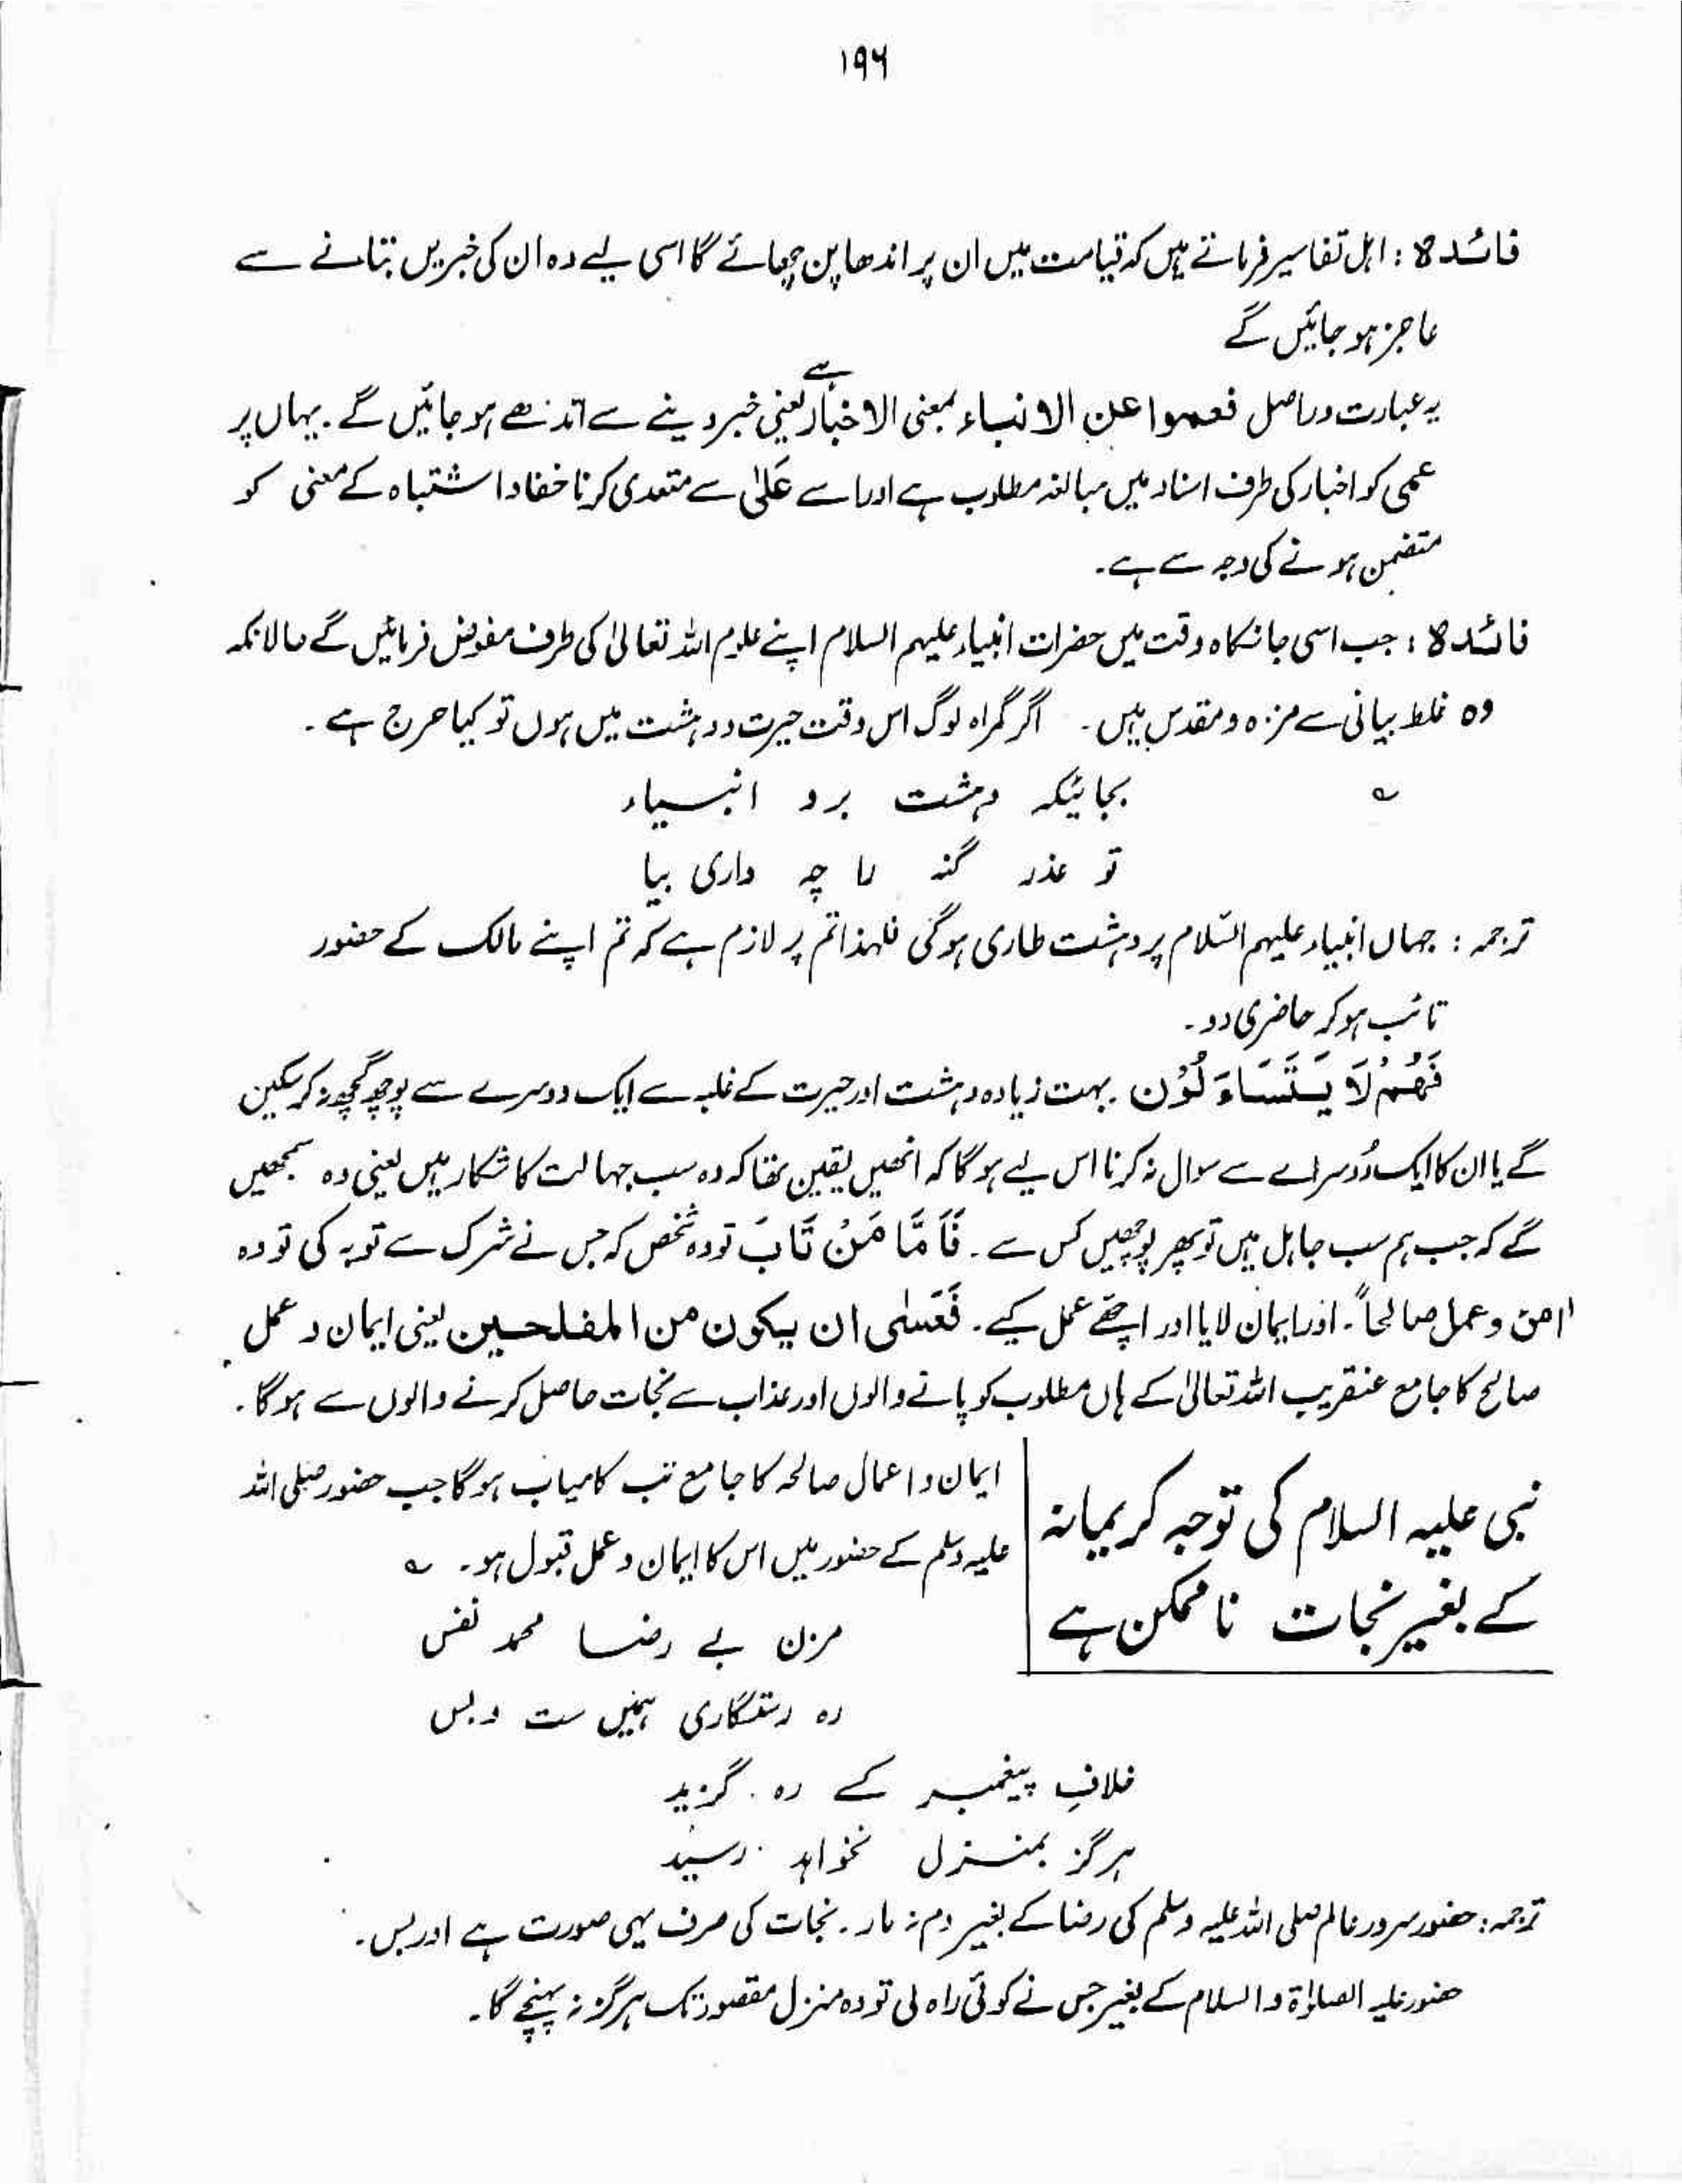 ۱۹۶
فائدہ : اہل تفاسیر فرماتے ہیں کہ قیامت میں ان پر اندھا پن چھائے گا اسی لیے وہ ان کی خبریں بتانے سے
عاجز ہو جائیں گے
یہ عبارت دراصل فعموا عن الانباء بمعنی الاخبار ہے یعنی خبر دینے سے اندھے ہو جائیں گے ۔ یہاں پر
عمی کو اخبار کی طرف اسناد میں مبالغہ مطلوب ہے اور اسے عَلیٰ سے متعدی کرنا خفا و اشتباہ کے معنی کو
متضمن ہونے کی وجہ سے ہے ۔
فائدہ : جب اسی جانکاہ وقت میں حضرات انبیاء علیہم السلام اپنے علوم اللہ تعالیٰ کی طرف مفوض فرمائیں گے حالانکہ
وہ غلط بیانی سے منزہ و مقدس ہیں ۔ اگر گمراہ لوگ اس وقت حیرت و دہشت میں ہوں تو کیا حرج ہے ۔
؎ بجائیکہ دہشت برد انبیاء
تو عذر گنہ را چہ داری بیا
ترجمہ : جہاں انبیاء علیہم السّلام پر دہشت طاری ہوگی فلہذا تم پر لازم ہے کہ تم اپنے مالک کے حضور
تائب ہو کر حاضری دو ۔
فَهُمْ لَا یَتَسَاءَلُوْن ۔ بہت زیادہ دہشت اور حیرت کے غلبہ سے ایک دوسرے سے پوچھ گچھ نہ کر سکیں
گے یا ان کا ایک دُوسرے سے سوال نہ کرنا اس لیے ہوگا کہ انھیں یقین تھا کہ وہ سب جہالت کا شکار ہیں یعنی وہ سمجھیں
گے کہ جب ہم سب جاہل ہیں تو پھر پوچھیں کس سے ۔ فَاَمَّا مَنْ تَابَ تو وہ شخص کہ جس نے شرک سے توبہ کی تو وہ
اٰمن وعمل صالحاً ۔ اور ایمان لایا اور اچھے عمل کیے ۔ فَعَسٰی ان یکون من المفلحین یعنی ایمان و عمل
صالح کا جامع عنقریب اللہ تعالیٰ کے ہاں مطلوب کو پانے والوں اور عذاب سے نجات حاصل کرنے والوں سے ہوگا ۔
نبی علیہ السلام کی توجہ کریمانہ
کے بغیر نجات ناممکن ہے
ایمان و اعمال صالحہ کا جامع تب کامیاب ہوگا جب حضور صلی اللہ
علیہ وسلم کے حضور میں اس کا ایمان و عمل قبول ہو ۔ ؎
مزن بے رضا محمد نفس
رہ رستگاری ہمیں ست و بس
خلافِ پیغمبر کے رہ گزید
ہرگز بمنزل نخواہد رسید
ترجمہ : حضور سرور عالم صلی اللہ علیہ وسلم کی رضا کے بغیر دم نہ مار ۔ نجات کی صرف یہی صورت ہے اور بس ۔
حضور علیہ الصلوٰۃ والسلام کے بغیر جس نے کوئی راہ لی تو وہ منزل مقصود تک ہرگز نہ پہنچے گا ۔